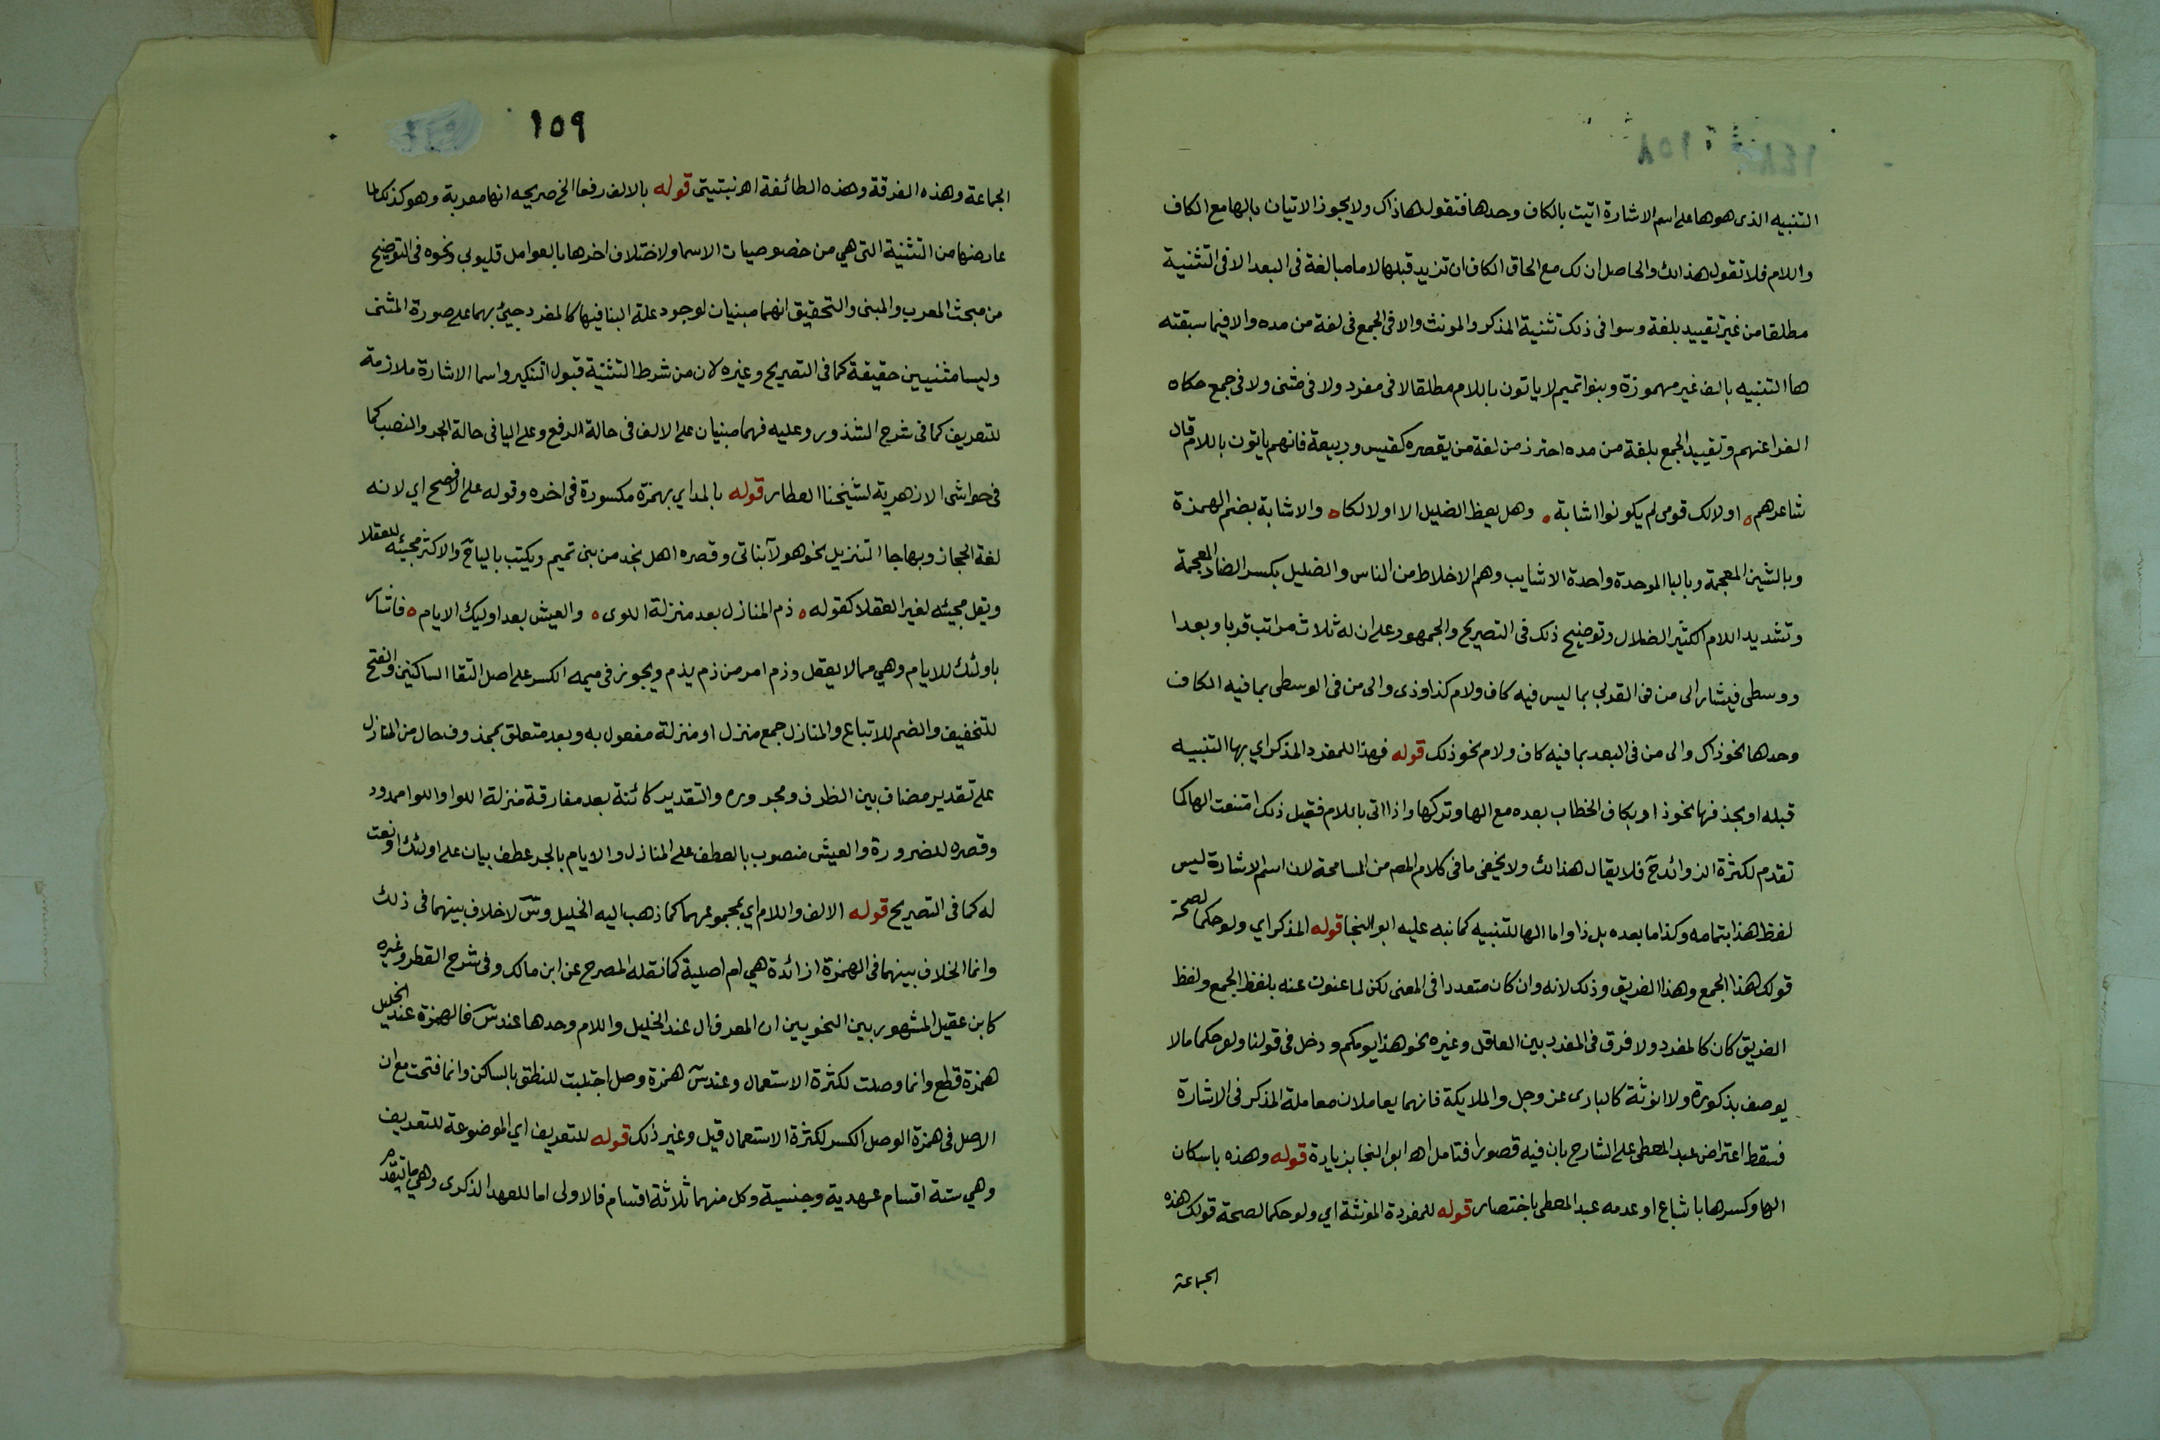 التنبيه الذى هو ها على اسم الاشارة اتيت بالكاف وحدها فتقول هاذاك ولا يجوز الاتيان بالها مع الكاف
واللام فلا تقول هذالك والحاصل ان لك مع الحاق الكاف ان تزيد قبلها لاما مبالغة فى البعد الا فى التثنية
مطلقا من غير تقييد بلغة وسوا فى ذلك تثنية المذكر والمونث والا فى الجمع فى لغة من مده والا فيما سبقته
ها التنبيه بالف غير مهموزة وبنوا تميم لا ياتون باللام مطلقا لا فى مفرد ولا فى مثنى ولا فى جمع حكاه
الفرا عنهم وتقييد الجمع بلغة من مده احترز من لغة من يقصره كقيس وربيعة فانهم ياتون باللام قال
شاعرهم ه اولالك قومى لم يكونوا اشابة ه وهل يعظ الضليل الا اولالكا ه والاشابة بضم الهمزة
وبالشين المعجمة وبالبا الموحدة واحدة الاشايب وهم الاخلاط من الناس والضليل بكسر الضاد المعجمة
وتشديد اللام الكثير الضلال وتوضيح ذلك فى التصريح والجمهور على ان له ثلاث مراتب قربا وبعدا
ووسطى فيشار الى من فى القربى بما ليس فيه كاف ولام كذا وذى والى من فى الوسطى بما فيه الكاف
وحدها نحو ذاك والى من فى البعد بما فيه كاف ولام نحو ذلك قوله فهذا للمفرد المذكر اي بها التنبيه
قبله او بحذفها نحو ذا وبكاف الخطاب بعده مع الها وتركها واذا اتى باللام فقيل ذلك امتنعت الها كما
تقدم لكثرة الزوائد ح فلا يقال هذالك ولا يخفى ما فى كلام المص من المسامحة لان اسم الاشارة ليس
لفظ هذا بتمامه وكذا ما بعده بل ذا واما الها للتنبيه كما نبه عليه ابو النجا قوله المذكر اي ولو حكما لصحة
قولك هذا الجمع وهذا الفريق وذلك لانه وان كان متعددا فى المعنى لكن لما عنون عنه بلفظ الجمع ولفظ
الفريق كان كالمفرد ولا فرق فى المفرد بين العاقل وغيره نحو هذا يومكم ودخل فى قولنا ولو حكما ما لا
يوصف بذكورة ولا انوثة كالبارى عز وجل والملايكة فانهما يعاملان معاملة المذكر فى الاشارة
فسقط اعتراض عبد المعطى على الشارح بان فيه قصورا فتامل اه ابو النجا بزيادة قوله وهذه باسكان
الها وكسرها باشباع او عدمه عبد المعطى باختصار قوله للمفردة المؤنثة اي ولو حكما لصحة قولك هذه
الجماعة
١٥٩
الجماعة وهذه الفرقة وهذه الطائفة اهـ نبتيتى قوله بالالف رفعا الخ صريحه انها معربة وهو كذلك لما
عارضها من التثنية التى هي من خصوصيات الاسما ولاختلاف اخرها بالعوامل قليوبى ونحوه فى التوضيح
من مبحث المعرب والمبنى والتحقيق انهما مبنيان لوجود علة البنا فيها كالمفرد جيئ بهما على صورة المثنى
وليسا مثنيين حقيقة كما فى التصريح وغيره لان من شرط التثنية قبول التنكير واسما الاشارة ملازمة
للتعريف كما فى شرح الشذور وعليه فهما مبنيان على الالف فى حالة الرفع وعلى اليا فى حالة الجر والنصب كما
فى حواشى الازهرية لشيخنا العطار قوله بالمد اي بهمزة مكسورة فى اخره وقوله على الافصح اي لانه
لغة الحجاز وبها جا التنزيل نحو هولآ بناتى وقصره اهل نجد من بنى تميم ويكتب باليا ح والاكثر مجيئه للعقلا
ويقل مجيئه لغير العقلا كقوله ه ذم المنازل بعد منزلة اللوى ه والعيش بعد اوليك الايام ه فاشار
باولئك للايام وهي مما لا يعقل وذم امر من ذم يذم ويجوز فى ميمه الكسر على اصل التقا الساكنين والفتح
للتخفيف والضم للاتباع والمنازل جمع منزل او منزلة مفعول به وبعد متعلق بمحذوف حال من المنازل
على تقدير مضاف بين الظرف ومجروره والتقدير كائنة بعد مفارقة منزلة اللوا واللوا ممدود
وقصره للضرورة والعيش منصوب بالعطف على المنازل والايام بالجر عطف بيان على اولئك او نعت
له كما فى التصريح قوله الالف واللام اي بمجموعهما كما ذهب اليه الخليل وس لا خلاف بينهما فى ذلك
وانما الخلاف بينهما فى الهمزة ازائدة هي ام اصلية كما نقله المصرح عن ابن مالك وفى شرح القطر وغيره
كابن عقيل المشهور بين النحويين ان المعرف ال عند الخليل واللام وحدها عند س فالهمزة عند الخليل
همزة قطع وانما وصلت لكثرة الاستعمال وعند س همزة وصل اجتلبت للنطق بالساكن وانما فتحت مع ان
الاصل فى همزة الوصل الكسر لكثرة الاستعمال قيل وغير ذلك قوله للتعريف اي الموضوعة للتعريف
وهي ستة اقسام عهدية وجنسية وكل منهما ثلاثة اقسام فالاولى اما للعهد الذكرى وهي ما تقدم